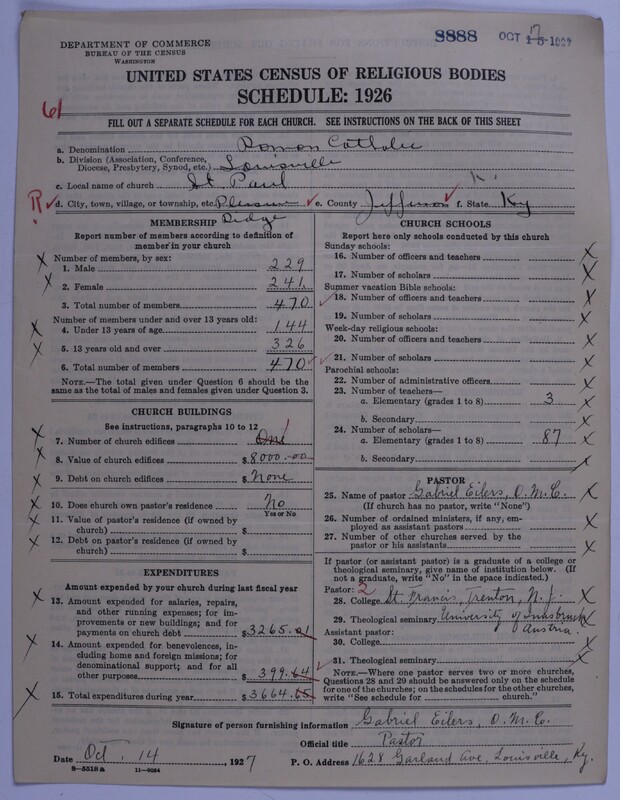 DEPARTMENT OF COMMERCE
BUREAU OF THE CENSUS
WASHINGTON
8888 OCT 17 15 1927
UNITED STATES CENSUS OF RELIGIOUS BODIES
SCHEDULE: 1926
61
FILL OUT A SEPARATE SCHEDULE FOR EACH CHURCH. SEE INSTRUCTIONS ON THE BACK OF THIS SHEET
a. Denomination Roman Catholic
b. Division (Association, Conference,
Diocese, Presbytery, Synod, etc.) Louisville
c. Local name of church St. Paul
R d. City, town, village, or township, etc. Pleasure Ridge e. County Jefferson f. State Ky
MEMBERSHIP
Report number of members according to definition of
member in your church
Number of members, by sex:
1. Male 229
2. Female 241
3. Total number of members 470
Number of members under and over 13 years old:
4. Under 13 years of age 144
5. 13 years old and over 326
6. Total number of members 470
NOTE.—The total given under Question 6 should be
the same as the total of males and females given under Question 3.
CHURCH BUILDINGS
See instructions, paragraphs 10 to 12
7. Number of church edifices One 1
8. Value of church edifices $ 8000.00
9. Debt on church edifices $ None
10. Does church own pastor's residence No
Yes or No
11. Value of pastor's residence (if owned by
church) $
12. Debt on pastor's residence (if owned by
church) $
EXPENDITURES
Amount expended by your church during last fiscal year
13. Amount expended for salaries, repairs,
and other running expenses; for im-
provements or new buildings; and for
payments on church debt $ 3265.01
14. Amount expended for benevolences, in-
cluding home and foreign missions; for
denominational support; and for all
other purposes 399.64
15. Total expenditures during year $ 3664.65
CHURCH SCHOOLS
Report here only schools conducted by this church
Sunday schools:
16. Number of officers and teachers
17. Number of scholars
Summer vacation Bible schools:
18. Number of officers and teachers
19. Number of scholars
Week-day religious schools:
20. Number of officers and teachers
21. Number of scholars
Parochial schools:
22. Number of administrative officers
23. Number of teachers—
a. Elementary (grades 1 to 8) 3
b. Secondary
24. Number of scholars—
a. Elementary (grades 1 to 8) 87
b. Secondary
PASTOR
25. Name of pastor Gabriel Eilers, O.M.C.
(If church has no pastor, write "None")
26. Number of ordained ministers, if any, em-
ployed as assistant pastors
27. Number of other churches served by the
pastor or his assistants
If pastor (or assistant pastor) is a graduate of a college or
theological seminary, give name of institution below. (If
not a graduate, write "No" in the space indicated.)
Pastor: 2
28. College St. Francis, Trenton, N.J.
29. Theological seminary University of Innsbruck
Austria.
Assistant pastor:
30. College
31. Theological seminary
NOTE.—Where one pastor serves two or more churches,
Questions 28 and 29 should be answered only on the schedule
for one of the churches; on the schedules for the other churches,
write "See schedule for church."
Signature of person furnishing information Gabriel Eilers, O.M.C.
Official title Pastor
Date Oct. 14 1927 P. O. Address 1628 Garland Ave, Louisville, Ky.
8—5518a 11—9084